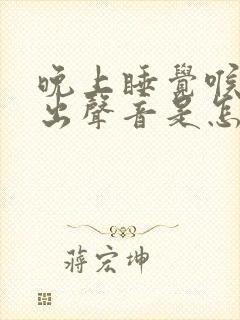 晚上睡覺喉
出聲音是怎
蔣宏坤